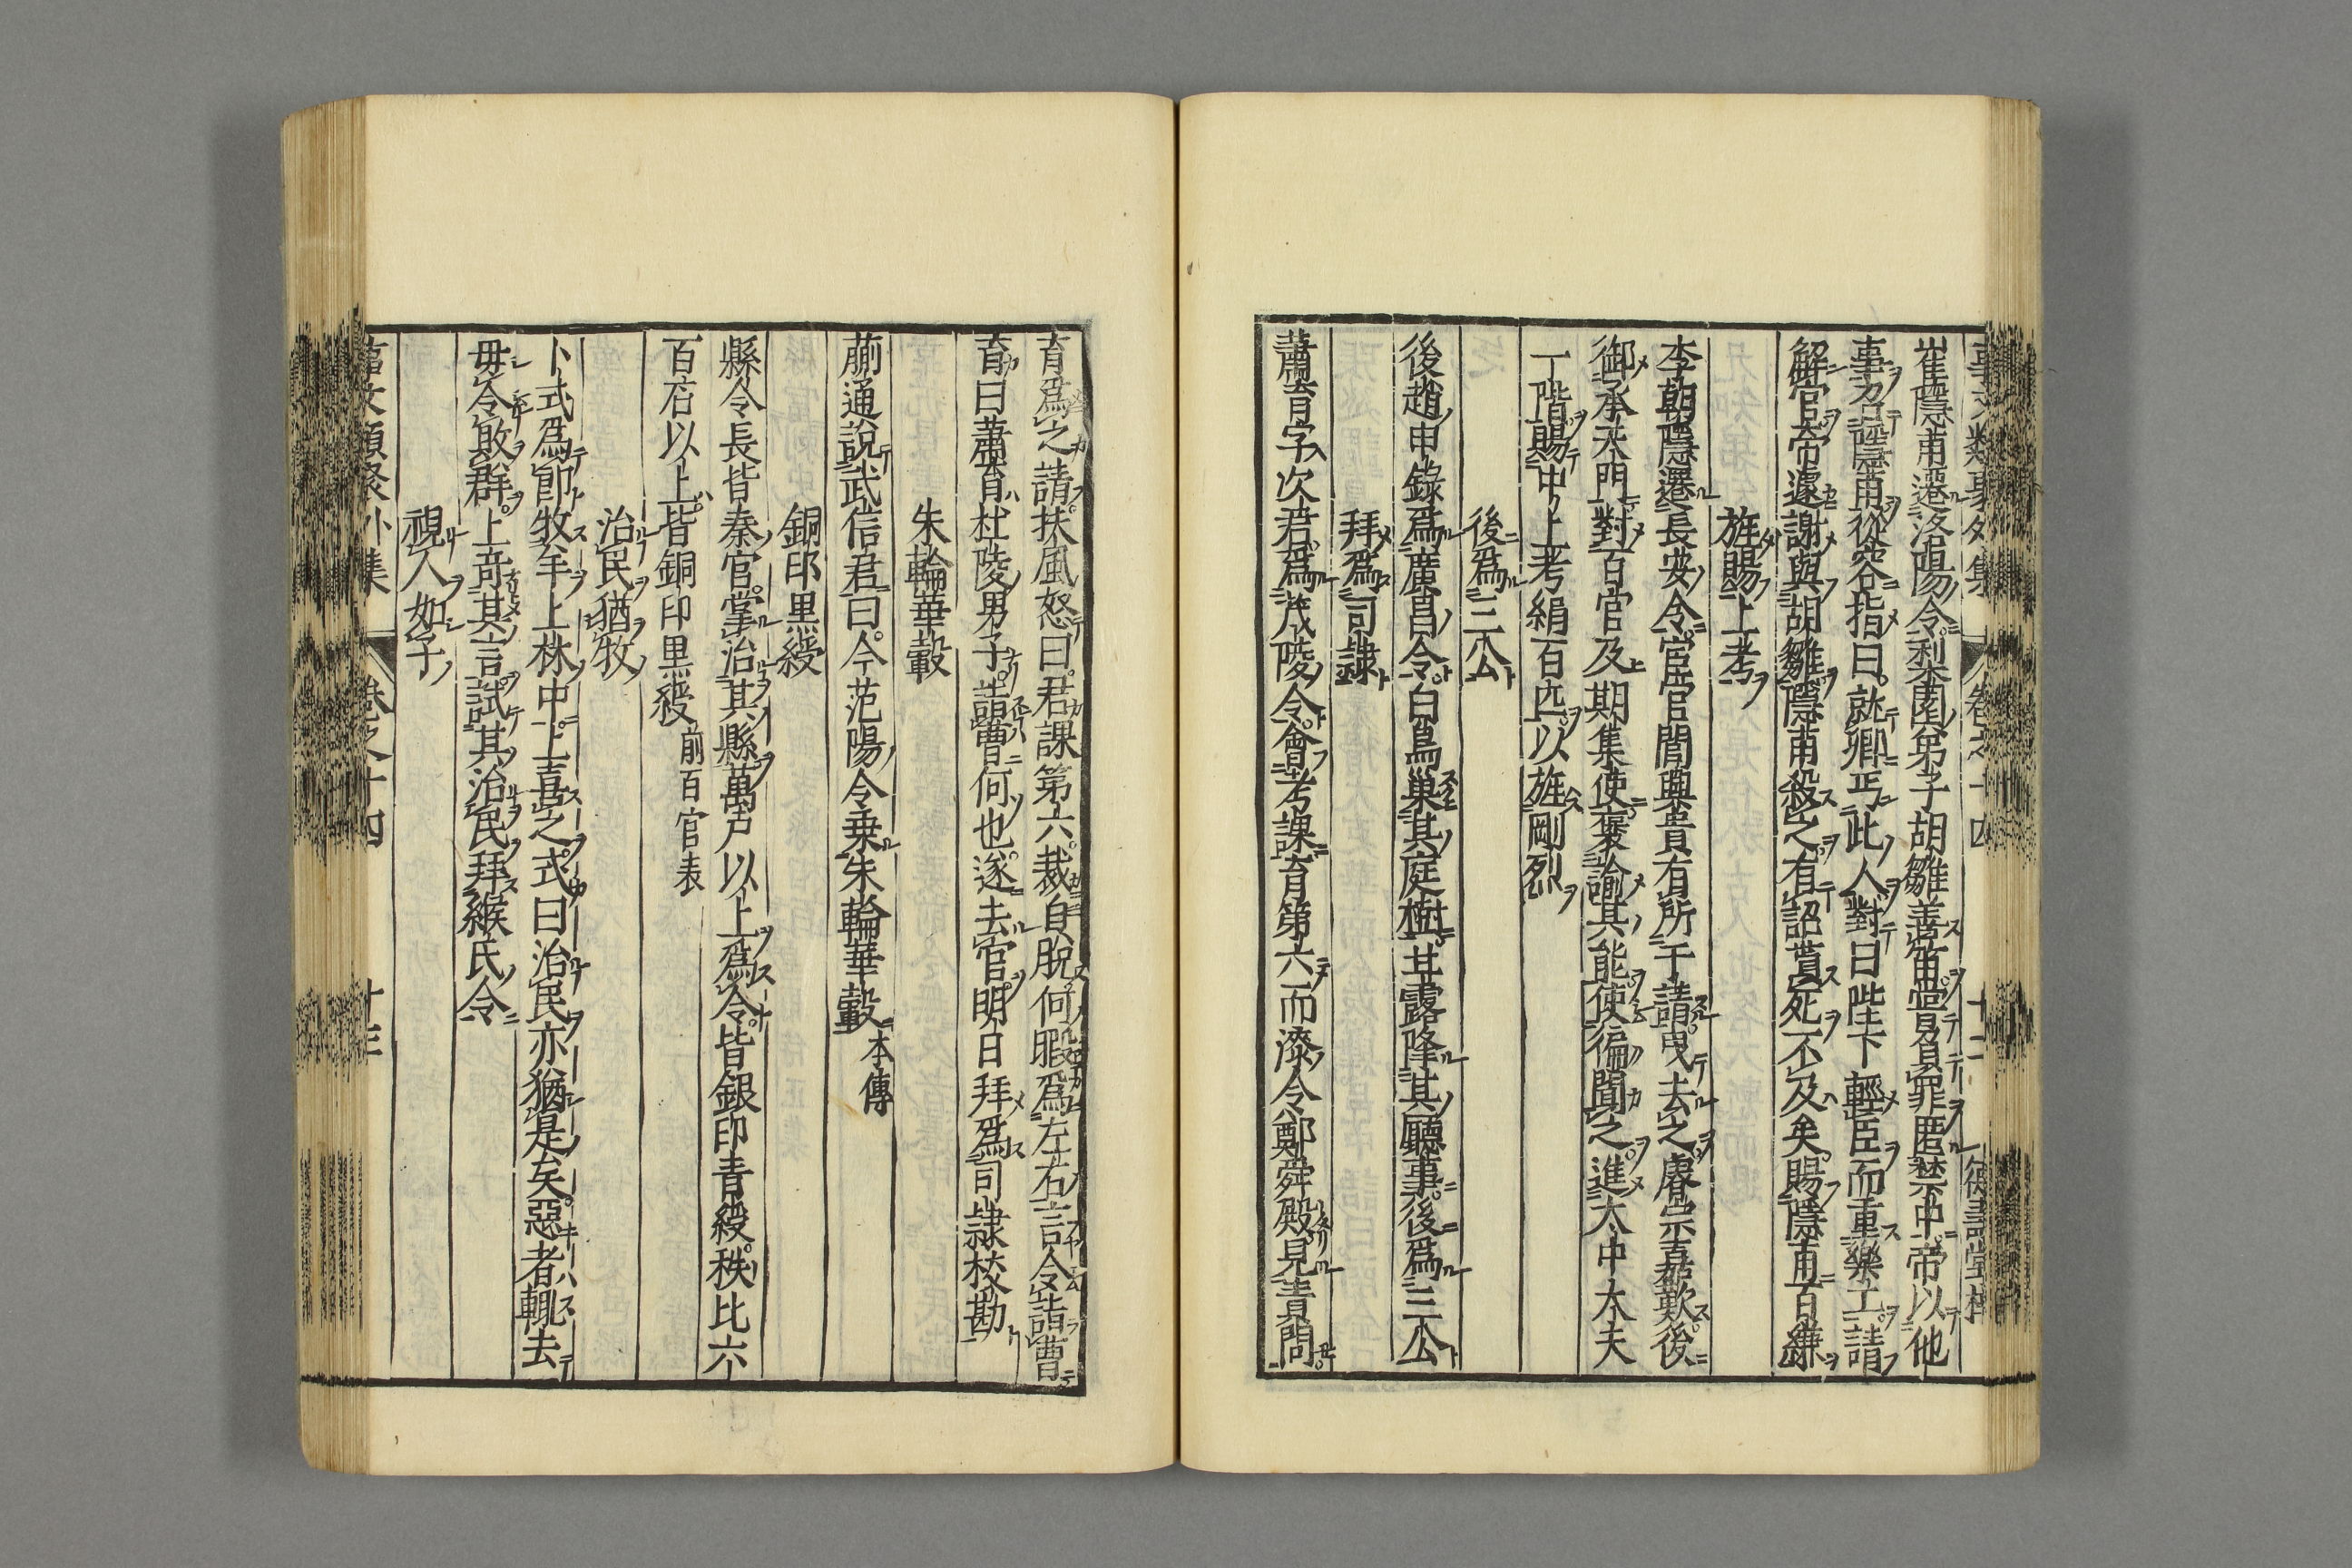 事文類聚外集 卷之十四 十二 德壽堂梓
崔隱甫遷洛陽令梨園弟子胡雛善笛嘗負罪匿禁中帝以他
事召隱甫從容指曰就卿丐此人對曰陛下輕臣而重樂工請
解官帝遽謝與胡雛隱甫殺之有詔貰死不及矣賜隱甫百縑
旌賜上考
李朝隱遷長安令宦官閭興貴有所干請曳去之睿宗嘉歎後
御承天門對百官及期集使褒諭其能使徧聞之進太中大夫
一階賜中上考絹百匹以旌剛烈
後爲三公
後趙申錄爲廣昌令白烏巢其庭樹甘露降其廳事後爲三公
拜爲司隷
蕭育字次君爲茂陵令會考課育第六而漆令郭舜殿見責問
育爲之請扶風怒曰君課第六裁自脫何暇爲左右言令詣曹
育曰蕭育杜陵男子詣曹何也遂去官明日拜爲司隷校勘
朱輪華轂
蒯通說武信君曰今范陽令乗朱輪華轂本傳
銅印黒綬
縣令長皆秦官掌治其縣萬戸以上爲令皆銀印青綬秩比六
百石以上皆銅印黒綬前百官表
治民猶牧
卜式爲郎牧羊上林中上喜之式曰治民亦猶是矣惡者輙去
毋令敗群上奇其言試其治民拜緱氏令
視人如子
事文類聚外集 卷之十四 十三